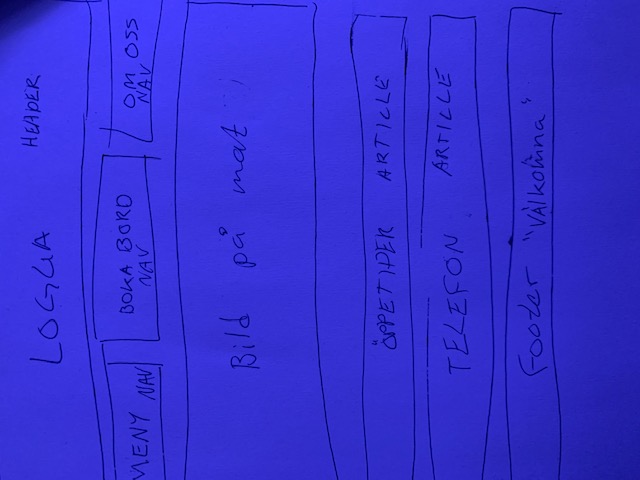 LOGGA HEADER
MENY NAV
BOKA BORD
NAV
OM OSS
NAV
Bild på mat
ÖPPETIDER ARTILLE
TELEFON ARTILLE
Footer "Välkomna"